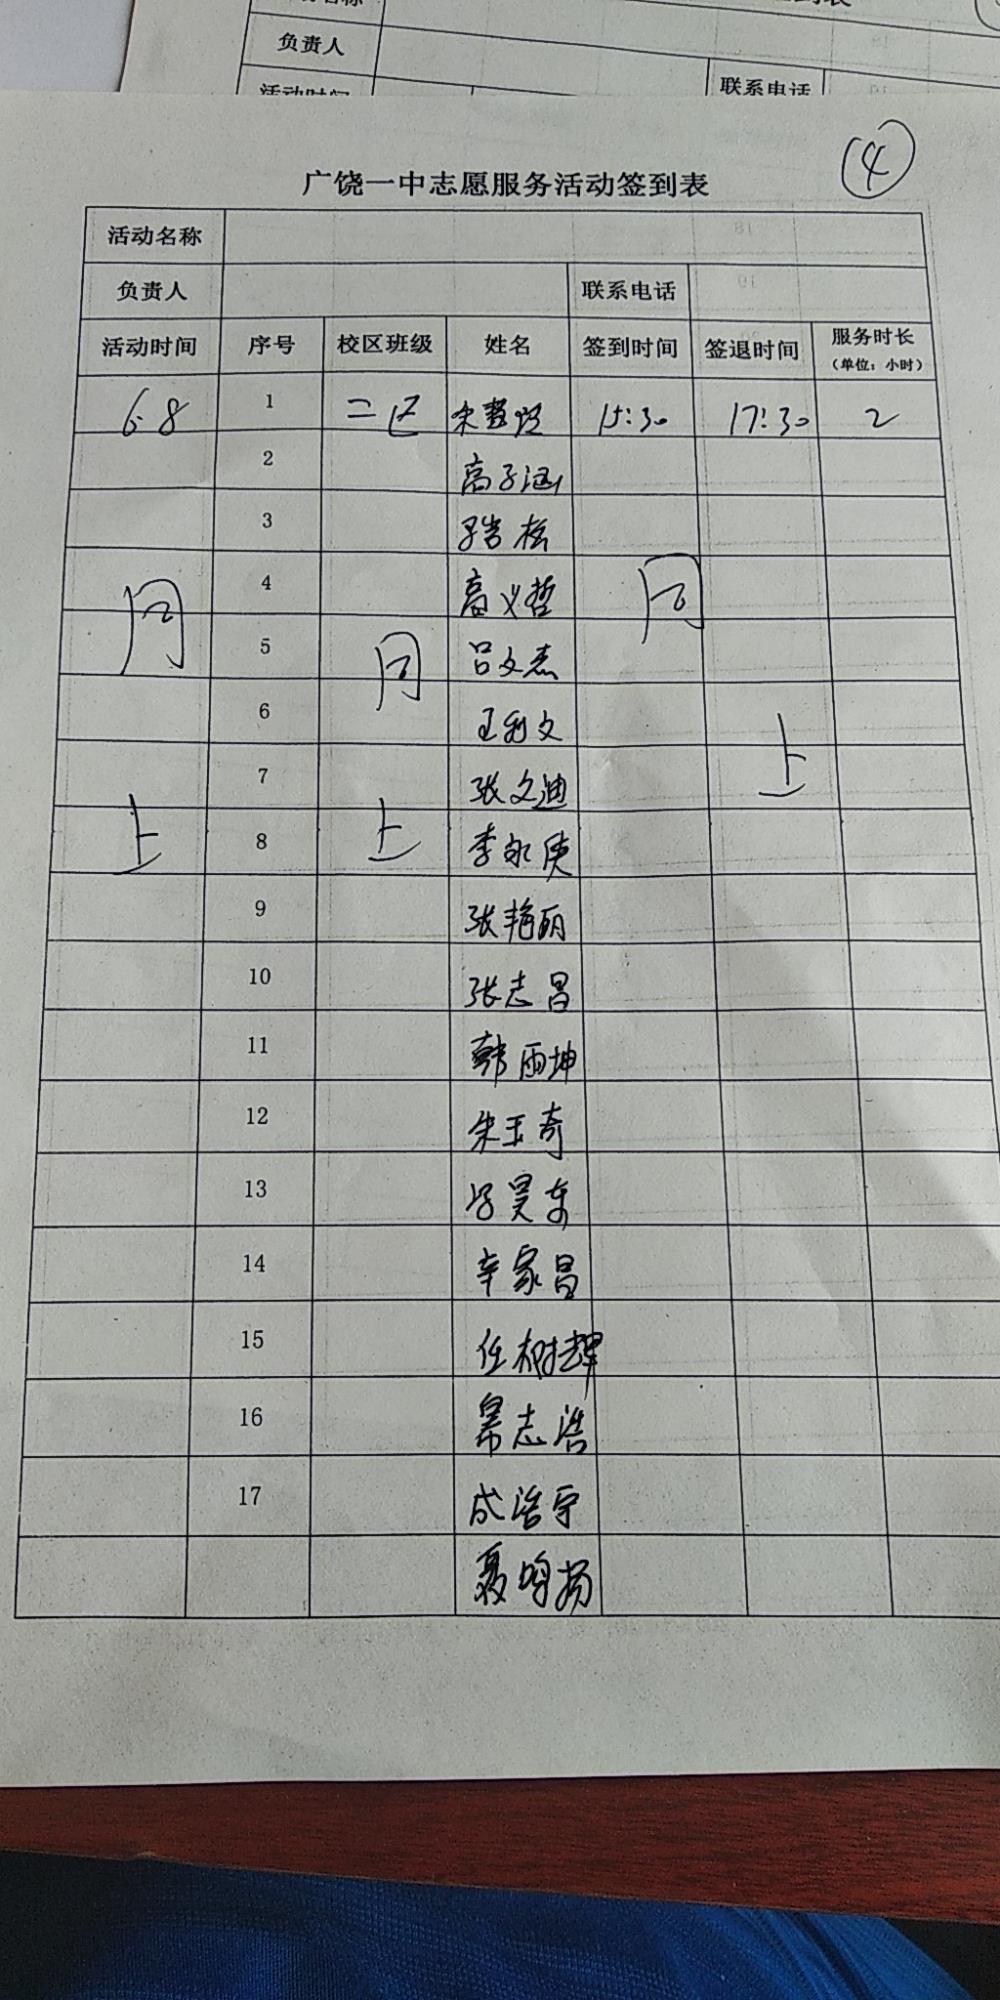 负责人
活动时间 联系电话
④
广饶一中志愿服务活动签到表
活动名称
负责人 联系电话
活动时间 序号 校区班级 姓名 签到时间 签退时间 服务时长
(单位：小时)
6.8 1 二区 15:30 17:30 2
2 高子涵
3 松
4 高义哲 同
同 5 同 吕文杰
6 王利文
7 张文迪 上
上 8 上 李永
9 张艳丽
10 张志昌
11 韩雨坤
12 朱玉奇
13 昊东
14 辛家昌
15 任树辉
16 綦志浩
17 成浩宇
聂鸣扬